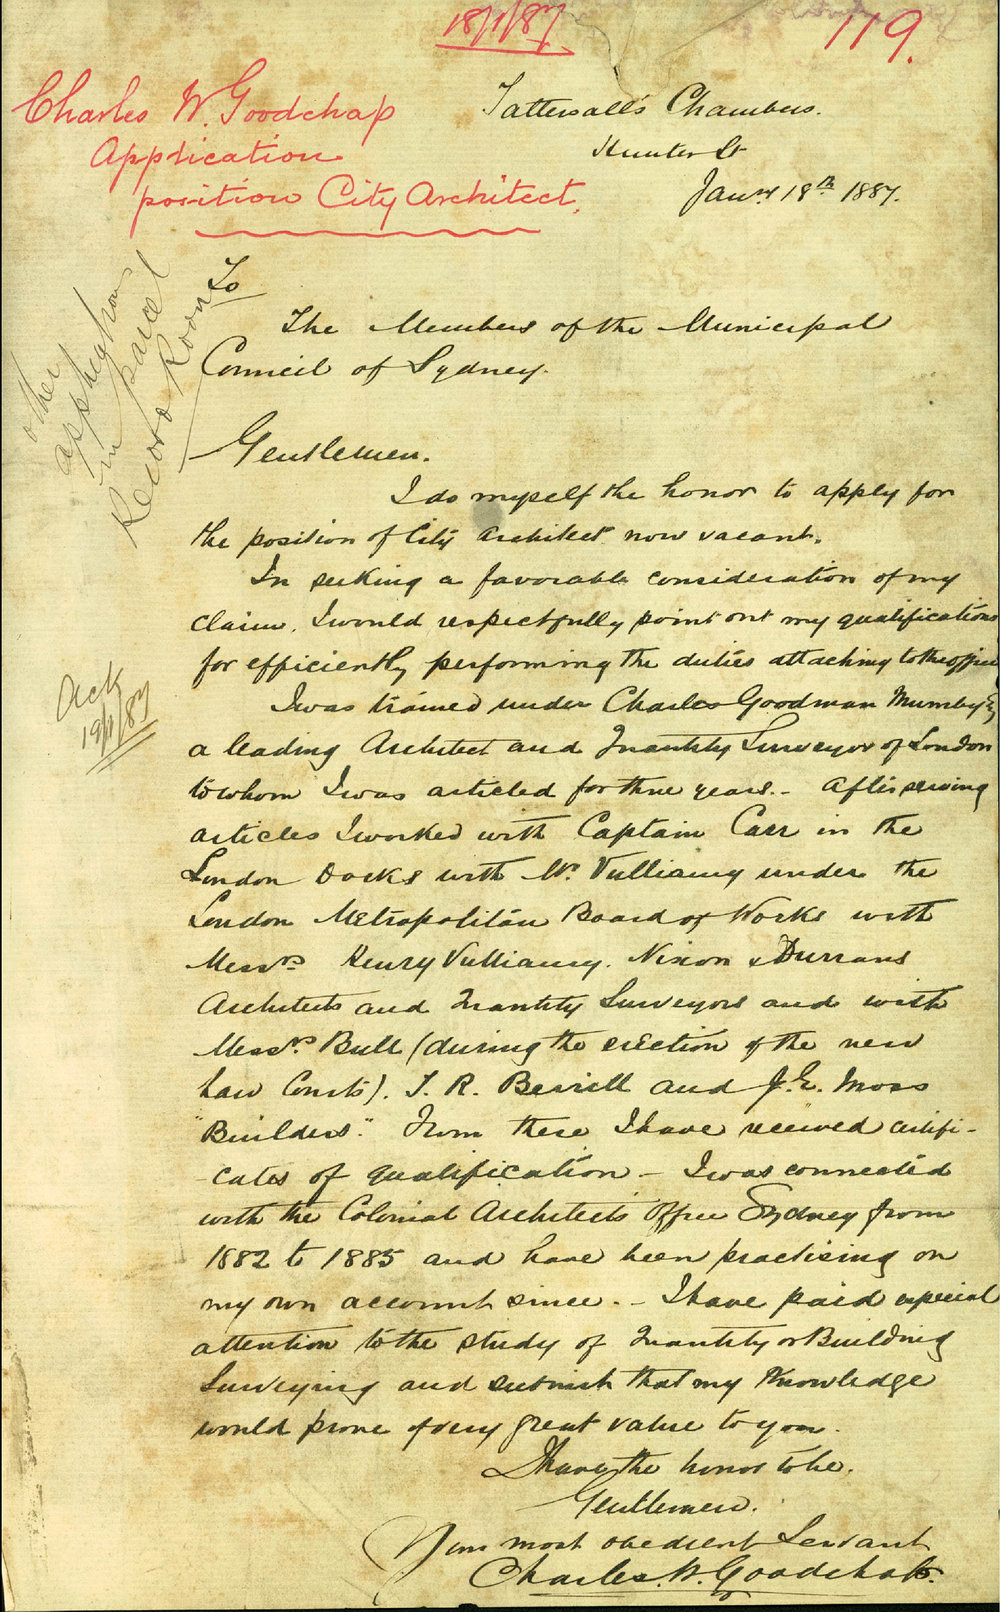 18/1/87
119.
Charles W. Goodchap
Application
position City Architect.
Tattersall's Chambers.
Hunter St
Jany 18th 1887.
other
application
in parcel
Record Room
To
The Members of the Municipal
Council of Sydney.
Gentlemen.
I do myself the honor to apply for
the position of City Architect now vacant.
In seeking a favorable consideration of my
claim, I would respectfully point out my qualifications
for efficiently performing the duties attaching to the office
Ack
19/1/87
I was trained under Charles Goodman Mumby
a leading Architect and Quantity Surveyor of London
to whom I was articled for three years. - After serving
articles I worked with Captain Carr in the
London Docks with Mr. Vulliamy under the
London Metropolitan Board of Works with
Messrs Henry Vulliamy. Nixon & Durrans
Architects and Quantity Surveyors and with
Messrs Bull (during the erection of the new
Law Courts). T. R. and J. E. Moss
"Builders". From these I have received certifi-
cates of qualification - I was connected
with the Colonial Architects Office Sydney from
1882 to 1885 and have been practising on
my own account since. - I have paid especial
attention to the study of Quantity or Building
Surveying and submit that my Knowledge
would prove of very great value to you.
I have the honor to be.
Gentlemen.
Your most obedient Servant
Charles. W. Goodchap.